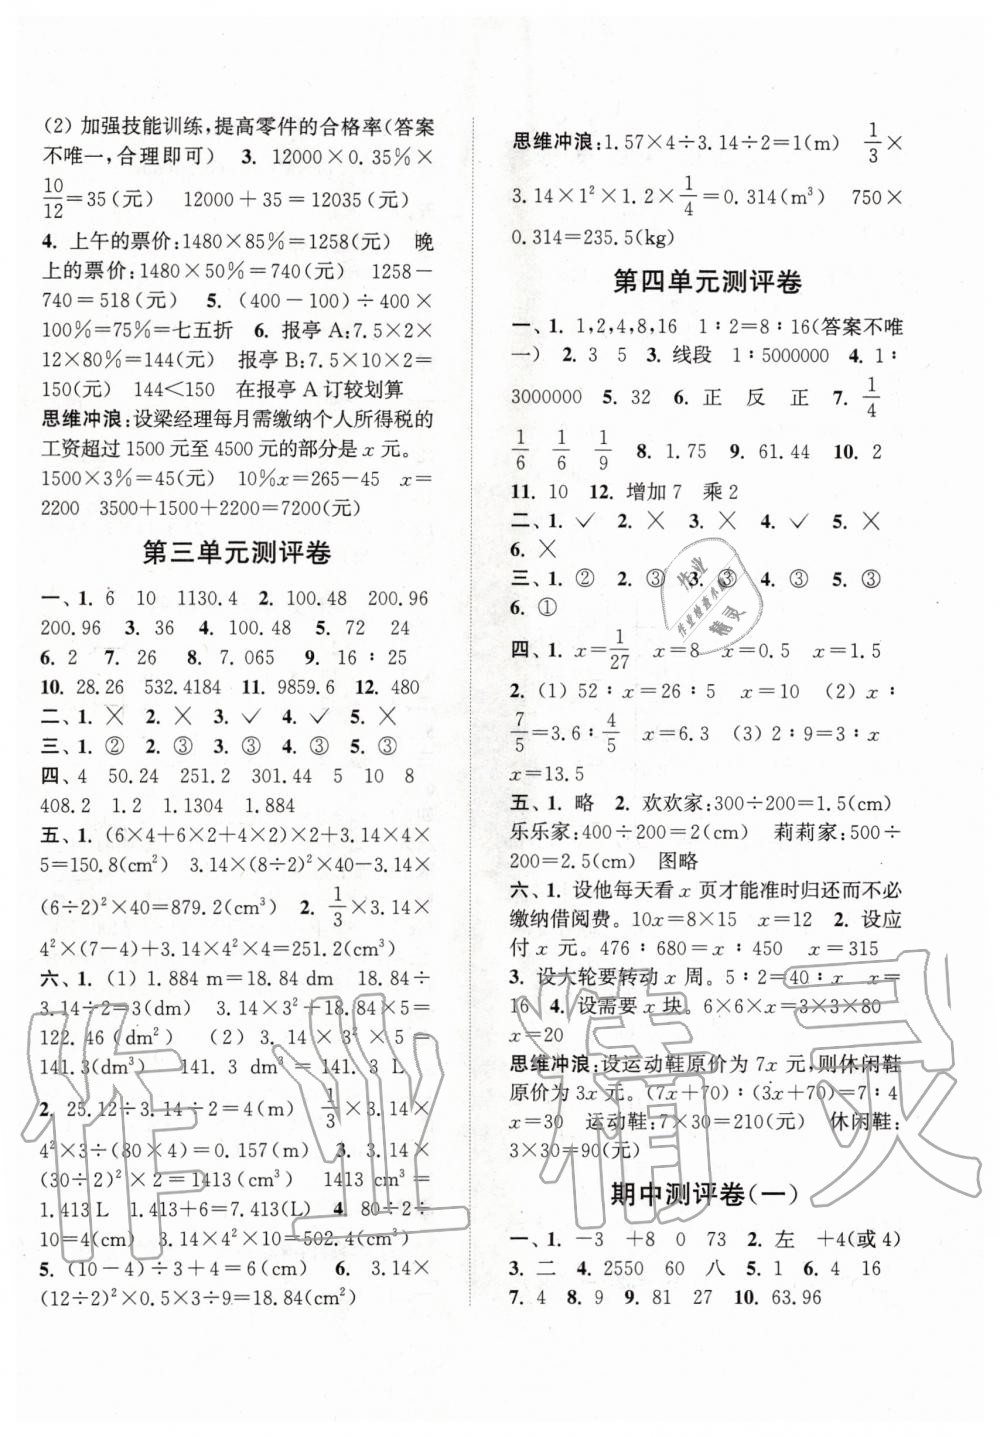 (2) 加强技能训练,提高零件的合格率(答案
不唯一,合理即可) 3. 12000×0.35%×
10/12=35(元) 12000+35=12035(元)
4. 上午的票价:1480×85%=1258(元) 晚
上的票价:1480×50%=740(元) 1258-
740=518(元) 5. (400-100)÷400×
100%=75%=七五折 6. 报亭 A:7.5×2×
12×80%=144(元) 报亭 B:7.5×10×2=
150(元) 144<150 在报亭 A 订较划算
思维冲浪:设梁经理每月需缴纳个人所得税的
工资超过 1500 元至 4500 元的部分是 x 元。
1500×3%=45(元) 10%x=265-45 x=
2200 3500+1500+2200=7200(元)
第三单元测评卷
一、1. 6 10 1130.4 2. 100.48 200.96
200.96 3. 36 4. 100.48 5. 72 24
6. 2 7. 26 8. 7.065 9. 16∶25
10. 28.26 532.4184 11. 9859.6 12. 480
二、1. × 2. × 3. ✓ 4. ✓ 5. ×
三、1. ② 2. ③ 3. ③ 4. ③ 5. ③
四、4 50.24 251.2 301.44 5 10 8
408.2 1.2 1.1304 1.884
五、1. (6×4+6×2+4×2)×2+3.14×4×
5=150.8(cm²) 3.14×(8÷2)²×40-3.14×
(6÷2)²×40=879.2(cm³) 2. 1/3×3.14×
4²×(7-4)+3.14×4²×4=251.2(cm³)
六、1. (1) 1.884 m=18.84 dm 18.84÷
3.14÷2=3(dm) 3.14×3²+18.84×5=
122.46(dm²) (2) 3.14×3²×5=
141.3(dm³) 141.3 dm³=141.3 L
2. 25.12÷3.14÷2=4(m) 1/3×3.14×
4²×3÷(80×4)=0.157(m) 3. 3.14×
(30÷2)²×2=1413(cm³) 1413 cm³=
1.413 L 1.413+6=7.413(L) 4. 80÷2÷
10=4(cm) 3.14×4²×10=502.4(cm³)
5. (10-4)÷3+4=6(cm) 6. 3.14×
(12÷2)²×0.5×3÷9=18.84(cm²)
思维冲浪:1.57×4÷3.14÷2=1(m) 1/3×
3.14×1²×1.2×1/4=0.314(m³) 750×
0.314=235.5(kg)
第四单元测评卷
一、1. 1,2,4,8,16 1∶2=8∶16(答案不唯
一) 2. 3 5 3. 线段 1∶5000000 4. 1∶
3000000 5. 32 6. 正 反 正 7. 1/4
1/6 1/6 1/9 8. 1.75 9. 61.44 10. 2
11. 10 12. 增加7 乘2
二、1. ✓ 2. × 3. × 4. ✓ 5. ×
6. ×
三、1. ② 2. ③ 3. ③ 4. ③ 5. ③
6. ①
四、1. x=1/27 x=8 x=0.5 x=1.5
2. (1) 52∶x=26∶5 x=10 (2) x∶
7/5=3.6∶4/5 x=6.3 (3) 2∶9=3∶x
x=13.5
五、1. 略 2. 欢欢家:300÷200=1.5(cm)
乐乐家:400÷200=2(cm) 莉莉家:500÷
200=2.5(cm) 图略
六、1. 设他每天看 x 页才能准时归还而不必
缴纳借阅费。10x=8×15 x=12 2. 设应
付 x 元。476∶680=x∶450 x=315
3. 设大轮要转动 x 周。5∶2=40∶x x=
16 4. 设需要 x 块。6×6×x=3×3×80
x=20
思维冲浪:设运动鞋原价为 7x 元,则休闲鞋
原价为 3x 元。(7x+70)∶(3x+70)=7∶4
x=30 运动鞋:7×30=210(元) 休闲鞋:
3×30=90(元)
期中测评卷(一)
一、1. -3 +8 0 73 2. 左 +4(或4)
3. 二 4. 2550 60 八 5. 1 6. 4 16
7. 4 8. 9 9. 81 27 10. 63.96
作业
作业检查小助手
精灵
作业精灵